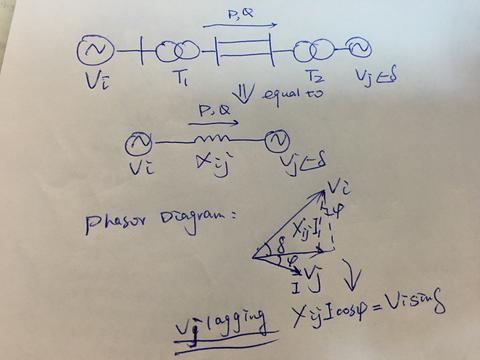 P,Q
Vi T1 T2 Vj∠-δ
equal to
P,Q
Vi Xij Vj∠-δ
Phasor Diagram:
Vi
φ
XijI
δ
φ
I Vj
Vj lagging XijIcosφ=Visinδ